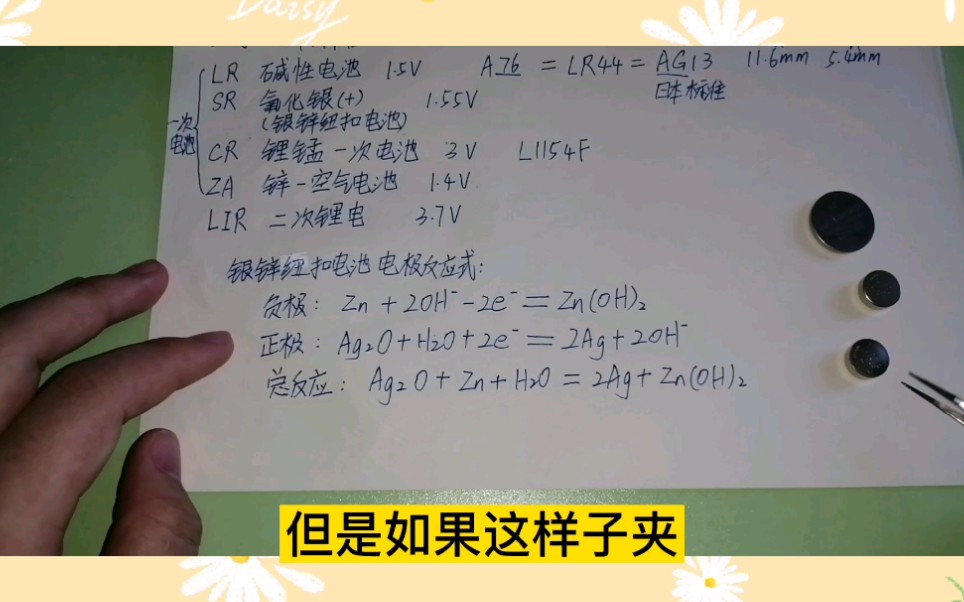 Daisy
LR 碱性电池 1.5V AZ6 = LR44 = AG13 11.6mm 5.4mm
日本标准
SR 氧化银(+) 1.55V
(银锌纽扣电池)
一次电池
CR 锂锰一次电池 3V L1154F
ZA 锌-空气电池 1.4V
LIR 二次锂电 3.7V
银锌纽扣电池 电极反应式:
负极: Zn + 2OH⁻ - 2e⁻ = Zn(OH)₂
正极: Ag₂O + H₂O + 2e⁻ = 2Ag + 2OH⁻
总反应: Ag₂O + Zn + H₂O = 2Ag + Zn(OH)₂
但是如果这样子夹